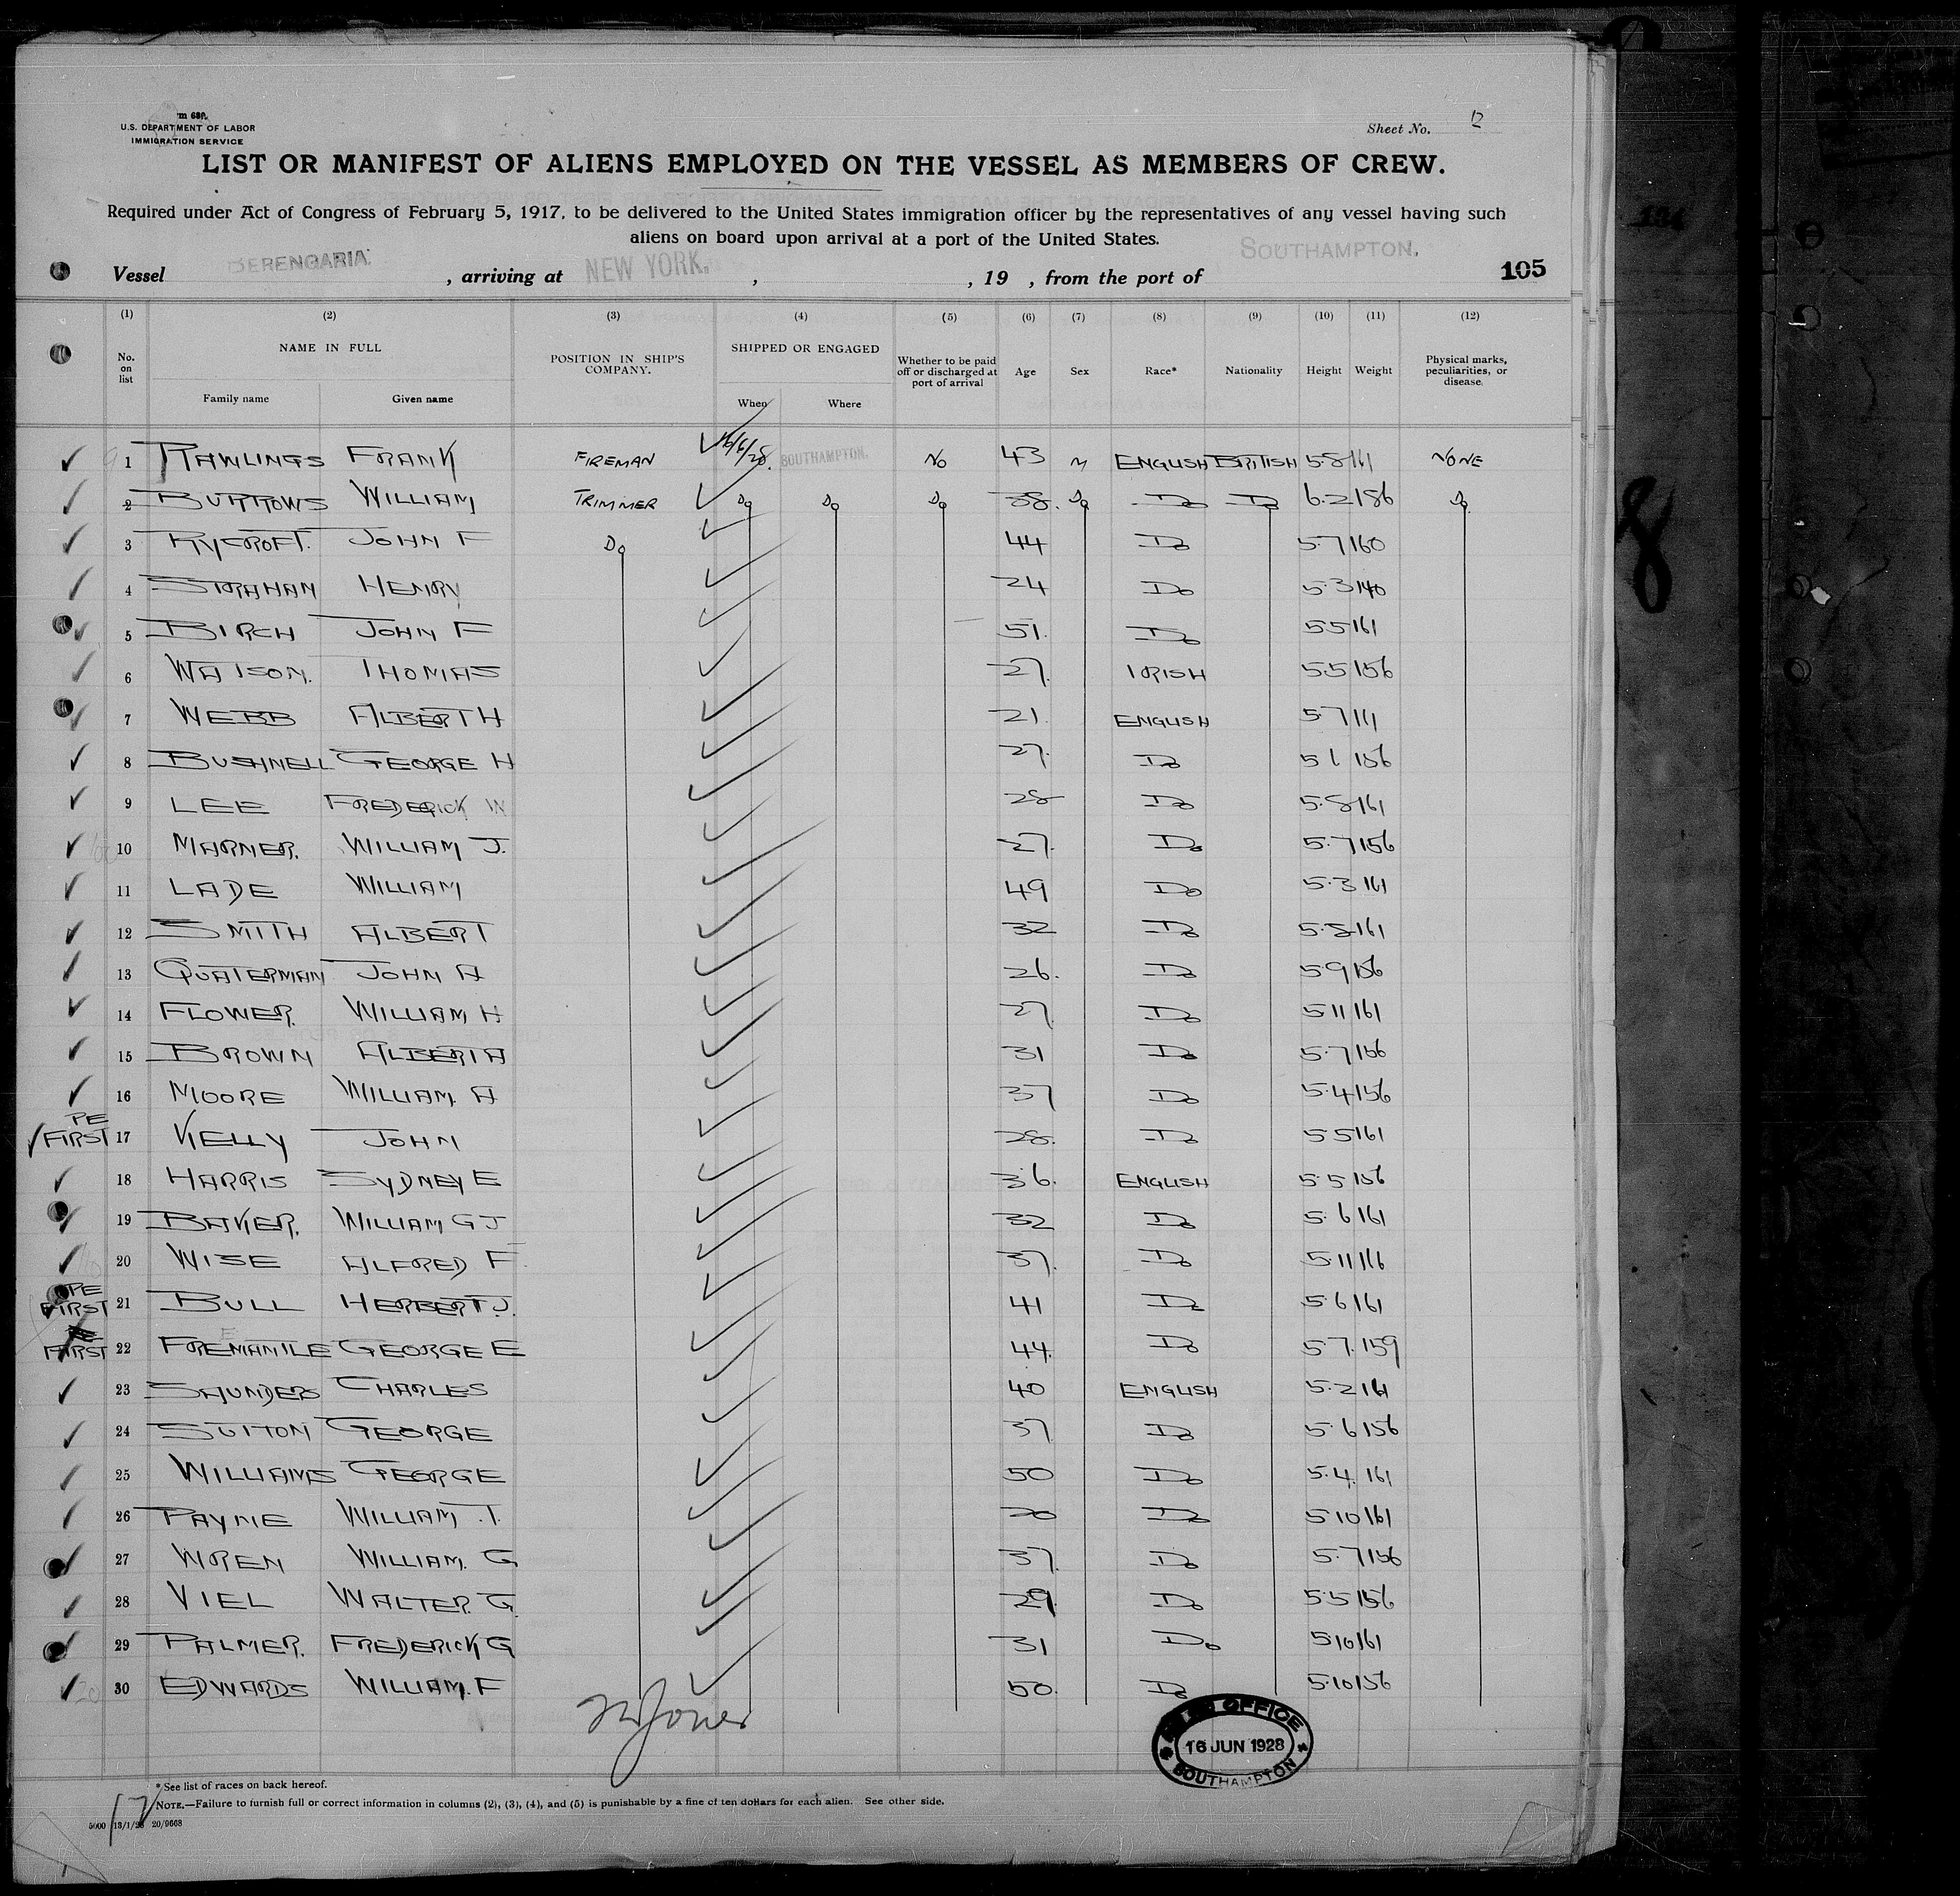 U.S. DEPARTMENT OF LABOR
IMMIGRATION SERVICE
Sheet No. 12
LIST OR MANIFEST OF ALIENS EMPLOYED ON THE VESSEL AS MEMBERS OF CREW.
Required under Act of Congress of February 5, 1917, to be delivered to the United States immigration officer by the representatives of any vessel having such
aliens on board upon arrival at a port of the United States.
Vessel BERENGARIA. , arriving at NEW YORK. , , 19 , from the port of SOUTHAMPTON. 105
(1) (2) (3) (4) (5) (6) (7) (8) (9) (10) (11) (12)
No. on list NAME IN FULL Family name Given name POSITION IN SHIP'S COMPANY. SHIPPED OR ENGAGED When Where Whether to be paid off or discharged at port of arrival Age Sex Race* Nationality Height Weight Physical marks, peculiarities, or disease.
1 RAWLINGS FRANK FIREMAN 16/6/28. SOUTHAMPTON. NO 43 M ENGLISH BRITISH 5.8 161 NONE
2 BURROWS WILLIAM TRIMMER Do Do Do 38. Do Do Do 6.2 186 Do
3 RYCROFT. JOHN F Do 44 Do 5.7 160
4 STRAHAN HENRY 24 Do 5.3 140
5 BIRCH JOHN F 51. Do 5.5 161
6 WATSON. THOMAS 27. IRISH 5.5 156
7 WEBB ALBERT H 21. ENGLISH 5.7 111
8 BUSHNELL GEORGE H 27. Do 5 6 156
9 LEE FREDERICK W 28 Do 5.8 161
10 MARNER. WILLIAM J. 27. Do 5.7 156
11 LADE WILLIAM 49 Do 5.3 161
12 SMITH ALBERT 32 Do 5.8 161
13 QUATERMAN JOHN A 26. Do 5 9 156
14 FLOWER. WILLIAM H 27. Do 5 11 161
15 BROWN ALBERT A 31 Do 5.7 156
16 MOORE WILLIAM. A 37 Do 5.4 156
PE
FIRST 17 KELLY JOHN 28. Do 5 5 161
18 HARRIS SYDNEY E 36. ENGLISH 5.5 156
19 BAKER. WILLIAM G J 32 Do 5.6 161
20 WISE ALFRED F 37. Do 5.11 166
PE
FIRST 21 BULL HERBERT J. 41 Do 5.6 161
FIRST 22 FREMANTLE GEORGE E 44. Do 5 7. 159
23 SAUNDERS CHARLES 40 ENGLISH 5.2 161
24 SUTTON GEORGE 37 Do 5.6 156
25 WILLIAMS GEORGE 50 Do 5.4. 161
26 PAYNE WILLIAM .T. 20 Do 5 10 161
27 WREN WILLIAM. G 37. Do 5.7 156
28 VIEL WALTER. G. 29. Do 5.5 156
29 PALMER. FREDERICK G 31 Do 5 10 161
30 EDWARDS WILLIAM. F 50. Do 5.10 156
OFFICE
16 JUN 1928
SOUTHAMPTON
* See list of races on back hereof.
NOTE.—Failure to furnish full or correct information in columns (2), (3), (4), and (5) is punishable by a fine of ten dollars for each alien. See other side.
17
5000 13/1/28 20/9668